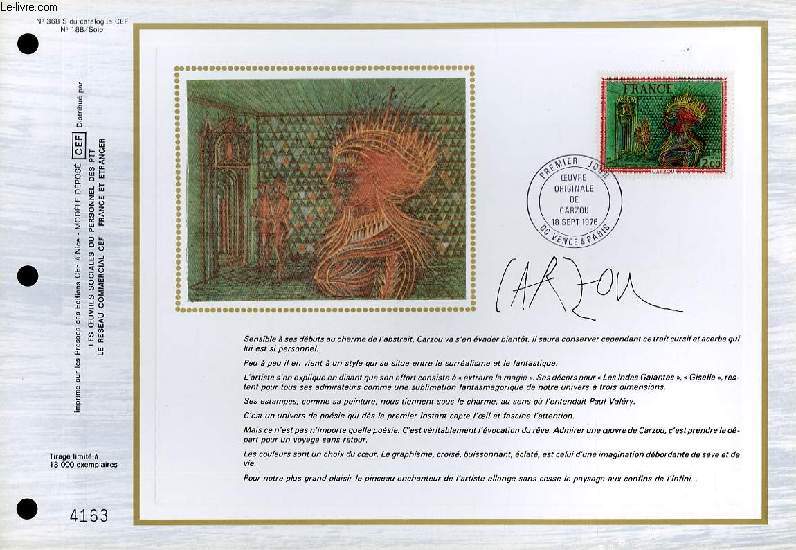 Le-livre.com
N° 368 S du catalogue CEF
N° 188/Soie
Imprimé sur les Presses des Editions CEF à Nice - MODÈLE DÉPOSÉ CEF Distribué par
LES ŒUVRES SOCIALES DU PERSONNEL DES PTT
LE RESEAU COMMERCIAL CEF FRANCE ET ETRANGER
FRANCE
2,00
CARZOU
PREMIER JOUR
ŒUVRE
ORIGINALE
DE
CARZOU
18 SEPT 1976
06 VENCE & PARIS
CARZOU
Sensible à ses débuts au charme de l'abstrait, Carzou va s'en évader bientôt. Il saura conserver cependant ce trait curatif et acerbe qui
lui est si personnel.
Peu à peu il en vient à un style qui se situe entre le surréalisme et le fantastique.
L'artiste s'en explique en disant que son effort consiste à « extraire la magie ». Ses décors pour « Les Indes Galantes », « Giselle », res-
tent pour tous ses admirateurs comme une sublimation fantasmagorique de notre univers à trois dimensions.
Ses estampes, comme sa peinture, nous tiennent sous le charme, au sens où l'entendait Paul Valéry.
C'est un univers de poésie qui dès le premier instant capte l'œil et fascine l'attention.
Mais ce n'est pas n'importe quelle poésie. C'est véritablement l'évocation du rêve. Admirer une œuvre de Carzou, c'est prendre le dé-
part pour un voyage sans retour.
Les couleurs sont un choix du cœur. Le graphisme, croisé, buissonnant, éclaté, est celui d'une imagination débordante de sève et de
vie.
Pour notre plus grand plaisir le pinceau enchanteur de l'artiste allonge sans cesse le paysage aux confins de l'infini...
Tirage limité à
13 000 exemplaires
4163